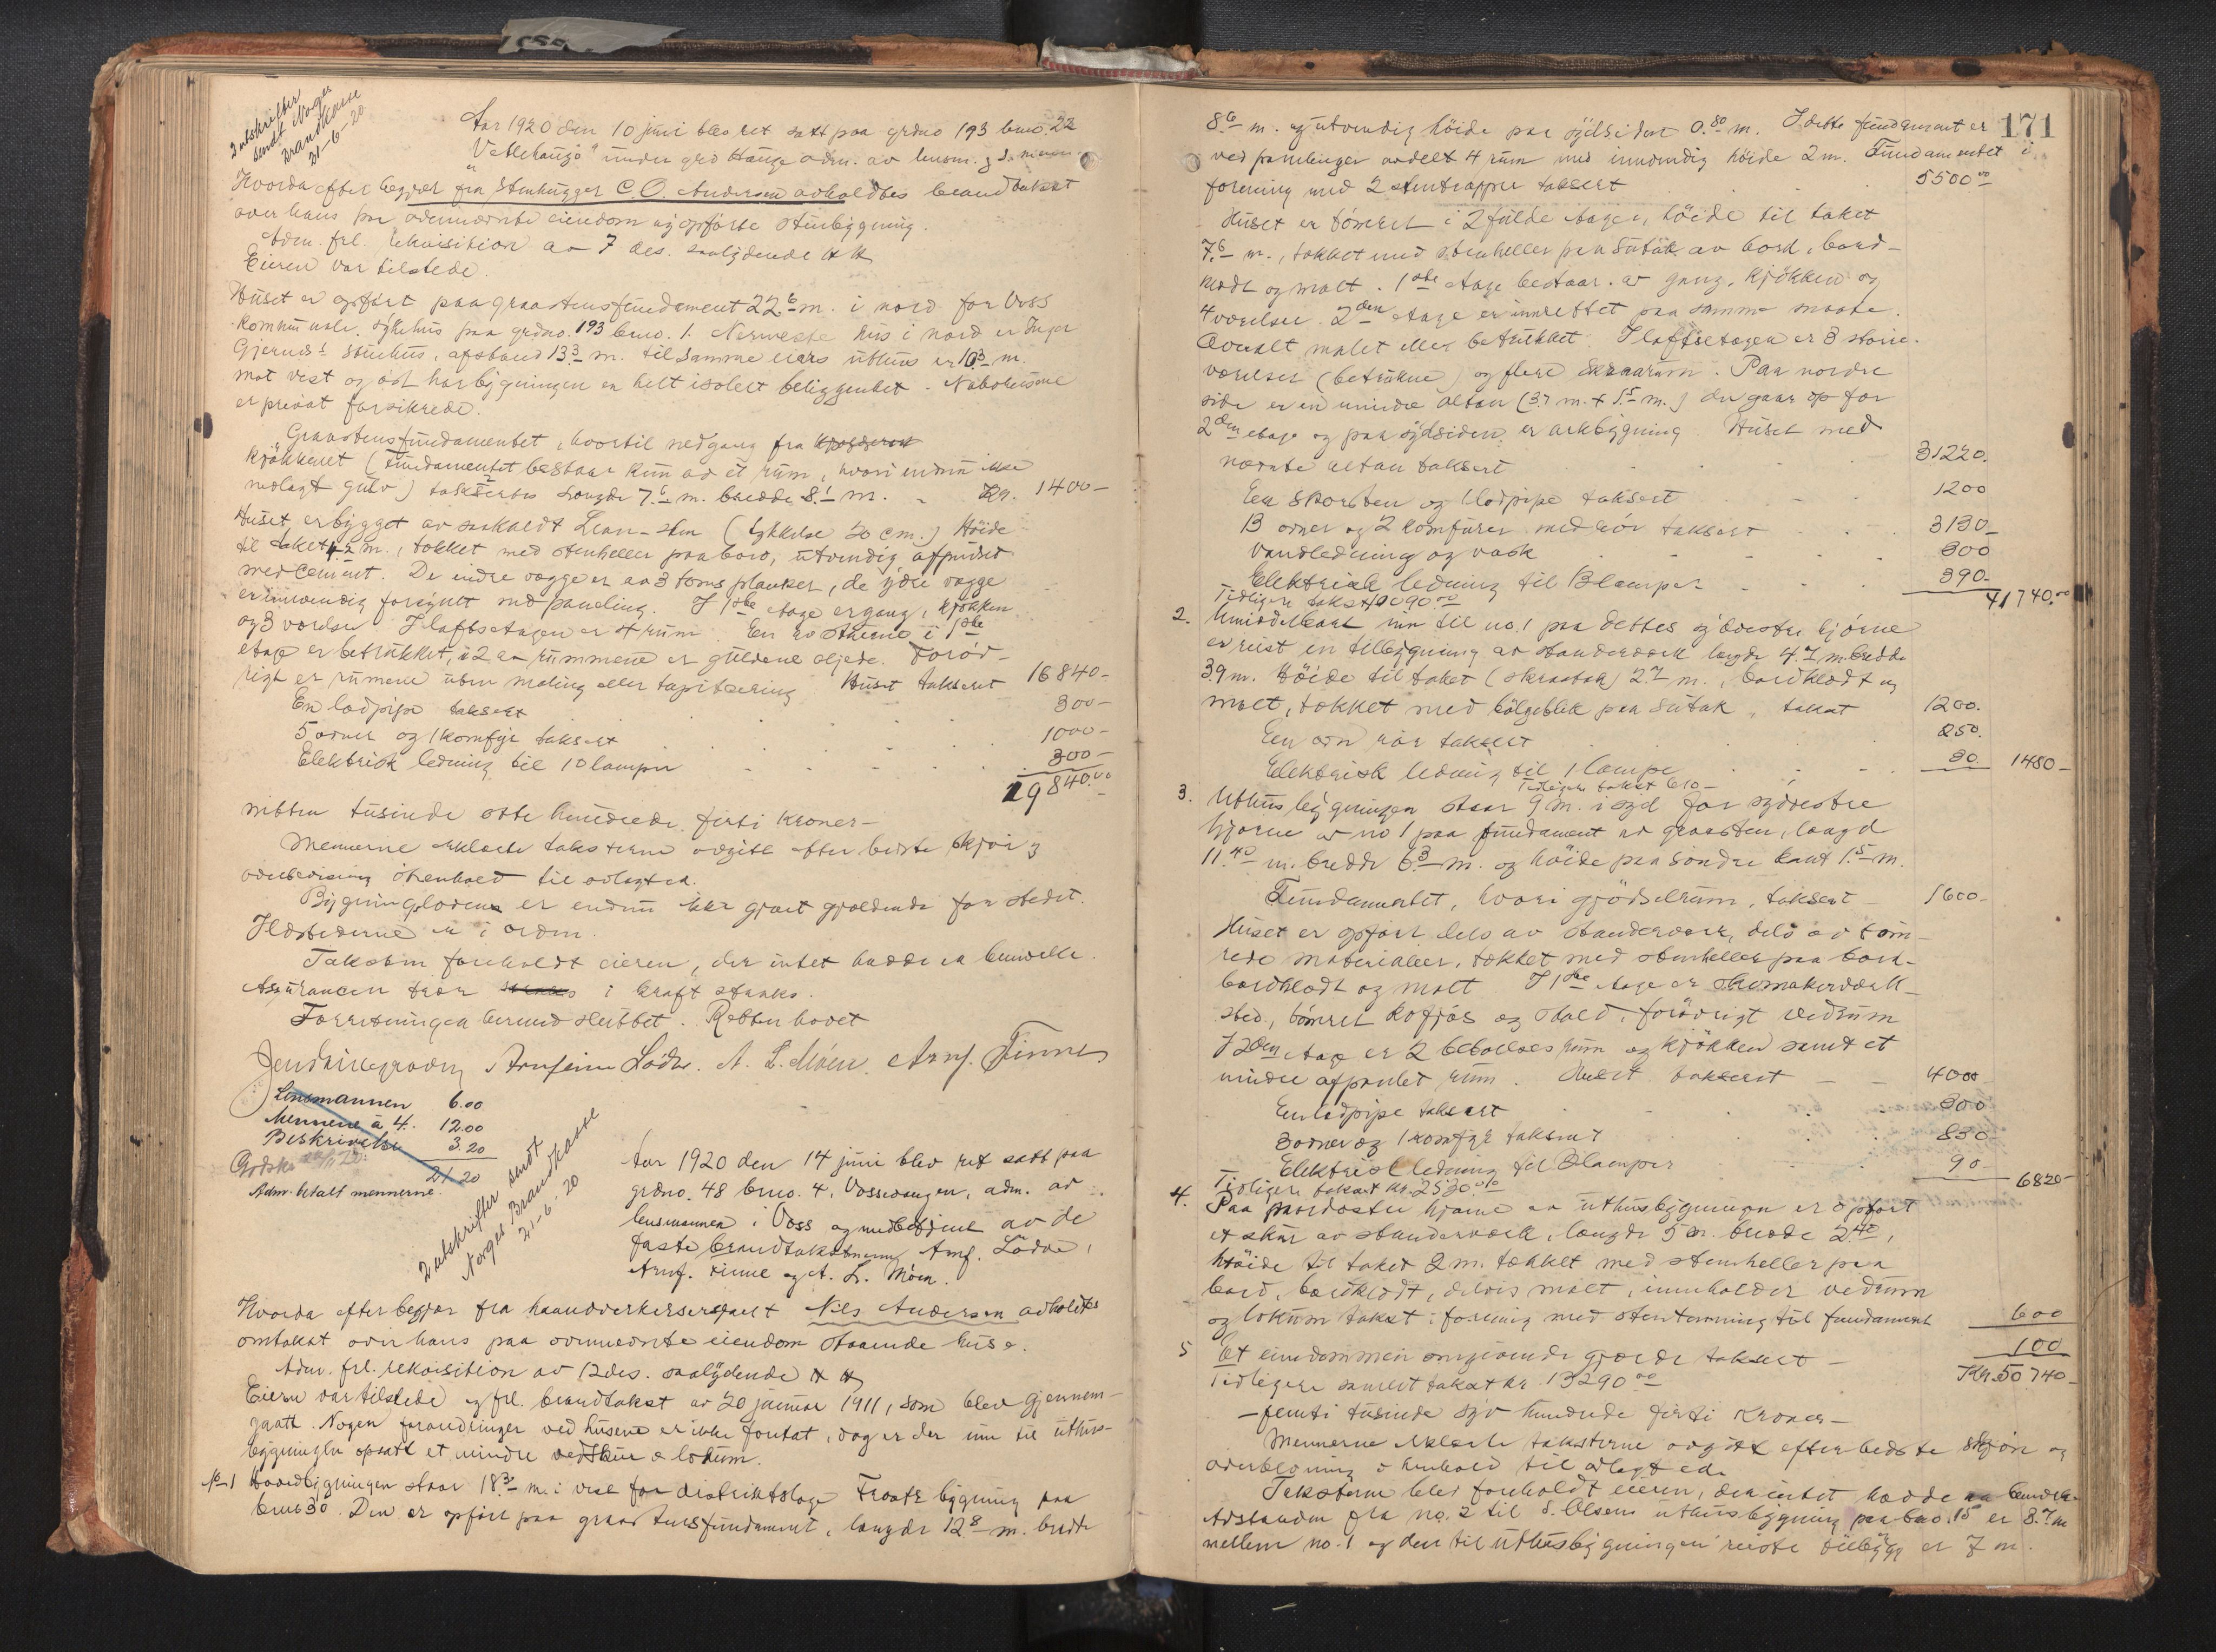 2 utskrifter
sendt Norges
Brandkasse
21-6-20
Aar 1920 den 10 juni blev ret satt paa grdno 193 bno. 22
"Vetlehaugo" under grd Hauge adm. av lensm. og 3 mænn.
Hvorda efter begjær fra Stenhugger C. O. Andersen avholdtes brandtakst
over hans paa ovennævnte eiendom opførte stuebygning.
Adm. frl. rekvisition av 7 ds. saalydende ## 
Eieren var tilstede.
Huset er opført paa graastensfundament 22.6 m. i nord for Voss
kommunale sykehus paa grdno. 193 bno. 1. Nærmeste hus i nord er Inger
Gjernes's stuehus, afstand 13.3 m. til samme eiers uthus er 10.3 m.
mot vest og øst har bygningen en helt isolert beliggenhet. Nabohusene
er privat forsikrede.
Graastensfundamentet, hvortil nedgang fra
kjøkkenet (fundamentet bestaar kun av et rum, hvori endnu ikke
nedlagt gulv) takseres længde 7.6 m. bredde 8.1 m. - Kr. 1400-
Huset er bygget av saakaldt Lean-sten (tykkelse 20 cm.) Høide
til taket 4.2 m., tækket med stenheller paa bord, utvendig afpudset
med cement. De indre vægge er av 3 toms planker, de ydre vægge
er innvendig forsynt med paneling. I 1ste etage er gang, kjøkken
og 3 værelser. I loftsetagen er 4 rum. En av stuerne i 1ste
etage er betrukket, i 2 av rummene er gulvene oljede. Forøv-
rigt er rumene uten maling eller tapetsering Huset taksert 16840-
En ladpipe taksert 300-
5 ovner og 1 komfyr taksert 1000-
Elektrisk ledning til 10 lamper 300-
19840.00
nitten tusinde otte hundrede firti kroner-
Mennerne erklærte taksterne avgitt efter bedste skjøn og
overbevisning i henhold til avlagt ed.
Bygningsloven er endnu ikke gjort gjældende for stedet.
Ildstederne er i orden.
Taksten foreholdt eieren, der intet hadde at bemerke.
Assurancen trær i kraft straks.
Forretningen hermed sluttet. Retten hævet
Arnfinn Lødve. A. L. Møen. Arnf. Finne
Lensmannen 6.00
Mennene à 4. 12.00
Beskrivelse 3.20
21.20
Adm. betalt mennerne.
2 utskrifter sendt
Norges Brandkasse
21-6-20
Aar 1920 den 14 juni blev ret satt paa
grdno. 48 bno. 4, Vossevangen, adm. av
lensmannen i Voss og medbetjent av de
faste brandtakstmenn Arnf. Lødve,
Arnf. Finne og A. L. Møen.
Hvorda efter begjær fra haandverkerserspant Nils Andersen avholdtes
omtakst over hans paa ovennevnte eiendom staaende huse.
Adm. frl. rekvisition av 12 ds. saalydende ##
Eieren var tilstede og frl. brandtakst av 20 januar 1911, som blev gjennem-
gaatt. Nogen forandringer ved husene er ikke foretat, dog er der inn til uthus-
bygningen opsatt et mindre vedskur & lokum.
No 1 Hovedbygningen staar 18.3 m. i vest for distriktslæge Troste bygning paa
bno 30. Den er opført paa graastensfundament, længde 12.8 m. bredde
171
8.6 m. og utvendig høide paa sydsiden 0.80 m. I dette fundament er
ved panelinger avdelt 4 rum med innvendig høide 2 m. Fundamentet i
forening med 2 stentrapper taksert 5500.00
Huset er tømret i 2 fulde etager, høide til taket
7.6 m., tækket med stenheller paa sutak av bord, bord-
klædt og malt. 1ste etage bestaar av gang, kjøkken og
4 værelser. 2den etage er innrettet paa samme maate.
Overalt malet eller betrukket. I loftsetagen er 3 større
værelser (betrukne) og flere smaarum. Paa nordre
side er en mindre altan (3.7 m. x 1.5 m.) der gaar op for
2den etage og paa sydsiden er arkbygning Huset med
nævnte altan taksert 31220.
En skorsten og 1 ladpipe taksert 1200
13 ovner og 2 komfurer med rør taksert 3130-
Vandledning og vask 300
Elektrisk ledning til 13 lamper 390-
Tidligere takst 10090.00 41740.00
2. Umiddelbart inn til no. 1 paa dettes sydvestre hjørne
er reist en tilbygning av standerverk længde 4.7 m. bredde
3.9 m. Høide til taket (skraatak) 2.7 m., bordklædt og
malt, tækket med bølgeblik paa sutak, takst 1200.
En ovn rør taksert 250.
Elektrisk ledning til 1 lampe 30. 1480-
Tidligere takst 610-
3. Uthusbygningen staar 9 m. i syd for sydvestre
hjørne av no 1 paa fundament av graasten, længd
11.40 m. bredde 6.3 m. og høide paa søndre kant 1.5 m.
Fundamentet, hvori gjødselrum, taksert - 1600-
Huset er opført dels av standerverk, dels av tøm-
rede materialier, tækket med stenheller paa bord.
bordklædt og malt I 1ste etage er skomakerverk-
sted, tømret kofjøs og stald, forøvrigt vedrum
I 2den etage er 2 beboelsesrum og kjøkken samt et
mindre afpanlet rum. Huset taksert - - 4000
En ladpipe taksert 300
3 ovner og 1 komfyr taksert 830-
Elektrisk ledning til 3 lamper 90-
Tidligere takst kr. 2530.00 6820-
4. Paa nordøstre hjørne av uthusbygningen er opført
et skur av standerverk, længde 5 m. bredde 2.40,
høide til taket 2 m. tækket med stenheller paa
bord, bordklædt, delvis malt, inneholder vedrum
og lokum takst i forening med stentomning til fundament 600
5 Et eiendommen omgivende gjærde taksert - 100
Tidligere samlet takst kr. 13290.00 Kr. 50740-
-femti tusinde syv hundrede firti kroner-
Mennerne erklærte taksterne avgitt efter bedste skjøn og
overbevisning i henhold til avlagt ed.
Taksterne blev foreholdt eieren, der intet hadde at bemerke.
Avstanden fra no. 2 til S. Olsens uthusbygning paa bno. 15 er 3.7 m
mellem no. 1 og den til uthusbygningen reiste tilbygg er 7 m.